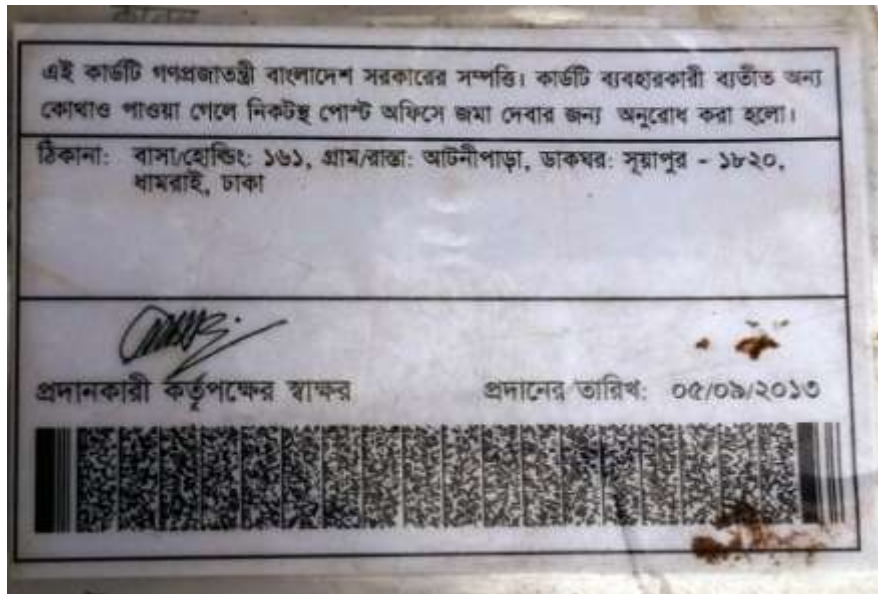 এই কার্ডটি গণপ্রজাতন্ত্রী বাংলাদেশ সরকারের সম্পত্তি। কার্ডটি ব্যবহারকারী ব্যতীত অন্য
কোথাও পাওয়া গেলে নিকটস্থ পোস্ট অফিসে জমা দেবার জন্য অনুরোধ করা হলো।
ঠিকানা: বাসা/হোল্ডিং: ১৬১, গ্রাম/রাস্তা: আটনীপাড়া, ডাকঘর: সূয়াপুর - ১৮২০,
ধামরাই, ঢাকা
প্রদানকারী কর্তৃপক্ষের স্বাক্ষর প্রদানের তারিখ: ০৫/০৯/২০১৩